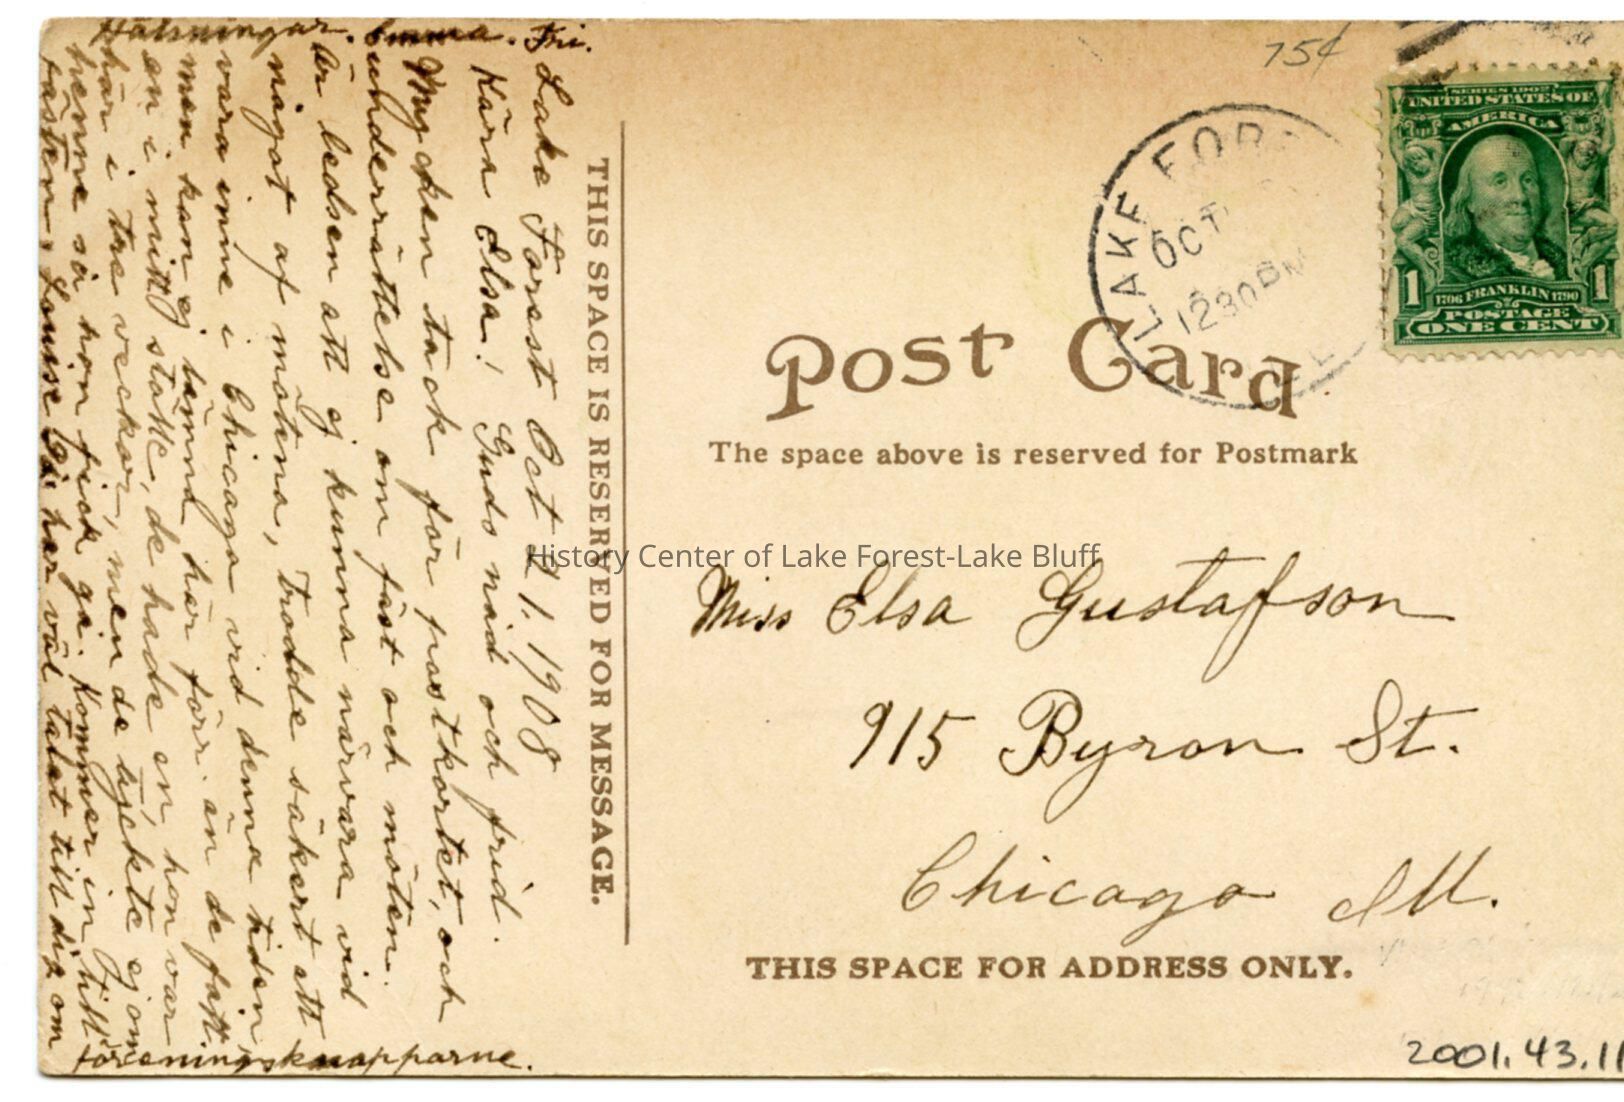 Lake Forest Oct 21. 1908
Kära Elsa! Guds nåd och frid.
Mycken tack för postkortet, och
underrättelse om fäst och möten.
är ledsen att ej kunna närvara vid
något af mötena, Trodde säkert att
vara inne i Chicago vid denna tiden,
men kan ej lämna här förr än de fått
en i mitt ställe, de hade en, hon var
här i tre veckor, men de tyckte ej om
henne så hon fick gå. Kommer in till
fästen, Louise har väl talat till dig om
föreningsknapparne.
Hälsningar. Emma. Fri.
THIS SPACE IS RESERVED FOR MESSAGE.
75¢
LAKE FOR
OCT
1230 PM
SERIES 1902
UNITED STATES OF
AMERICA
1 1
1706 FRANKLIN 1790
POSTAGE
ONE CENT
Post Card
The space above is reserved for Postmark
History Center of Lake Forest-Lake Bluff
Miss Elsa Gustafson
915 Byron St.
Chicago Ill.
THIS SPACE FOR ADDRESS ONLY.
2001.43.11